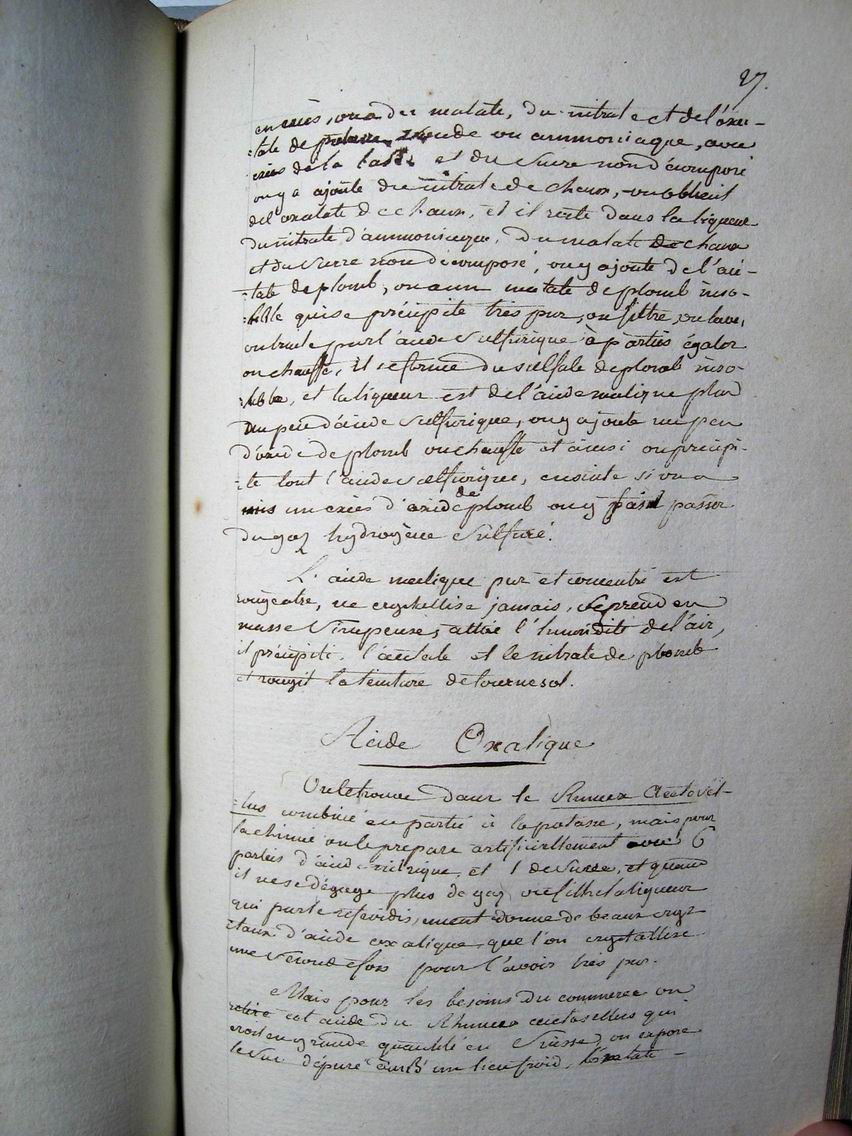 27.
en excès, on a des malate, du nitrate et de l'oxa-
-late de soude ou ammoniaque, avec
excès de la base et du sucre non décomposé
on y a ajouté du nitrate de chaux, on obtient
del'oxalate de chaux, et il reste dans la liqueur
du nitrate d'ammoniaque, du malate de chaux
et du sucre non decomposé, on y ajoute de l'acé-
-tate de plomb, on a un malate de plomb inso-
-luble qui se précipite très pur, on filtre, on lave,
on traite par l'acide sulfurique à parties égales
on chauffe, il se forme du sulfate de plomb inso-
-luble, et la liqueur est de l'acide malique plus
un peu d'acide sulfurique, on y ajoute un peu
d'oxide de plomb on chauffe et ainsi on précipi-
-te tout l'acide sulfurique, ensuite si on a
mis un excès d'oxide de plomb on y fait passer
du gaz hydrogène sulfuré.
L'acide malique pur et concentré est
rougeatre, ne crystallise jamais, se prend en
masse sirupeuse, attire l'humidité de l'air,
il précipite l'acétate et le nitrate de plomb
et rougit la teinture de tournesol.
Acide Oxalique
On le trouve dans le Rumex Acetosel-
-lus combiné en partie à la potasse, mais pour
la chimie on le prepare artificiellement avec 6
parties d'acide nitrique et 1 de sucre, et quand
il ne se dégage plus de gaz on filtre la liqueur
qui par le refroidissement donne de beaux crys-
-taux d'acide oxalique que l'on crystallise
une seconde fois pour l'avoir très pur.
Mais pour les besoins du commerce on
retire cet acide du Rhumex acetosellus qui
croit en grande quantité en Suisse, on expose
le suc dépuré dans un lieu froid, l'oxalate